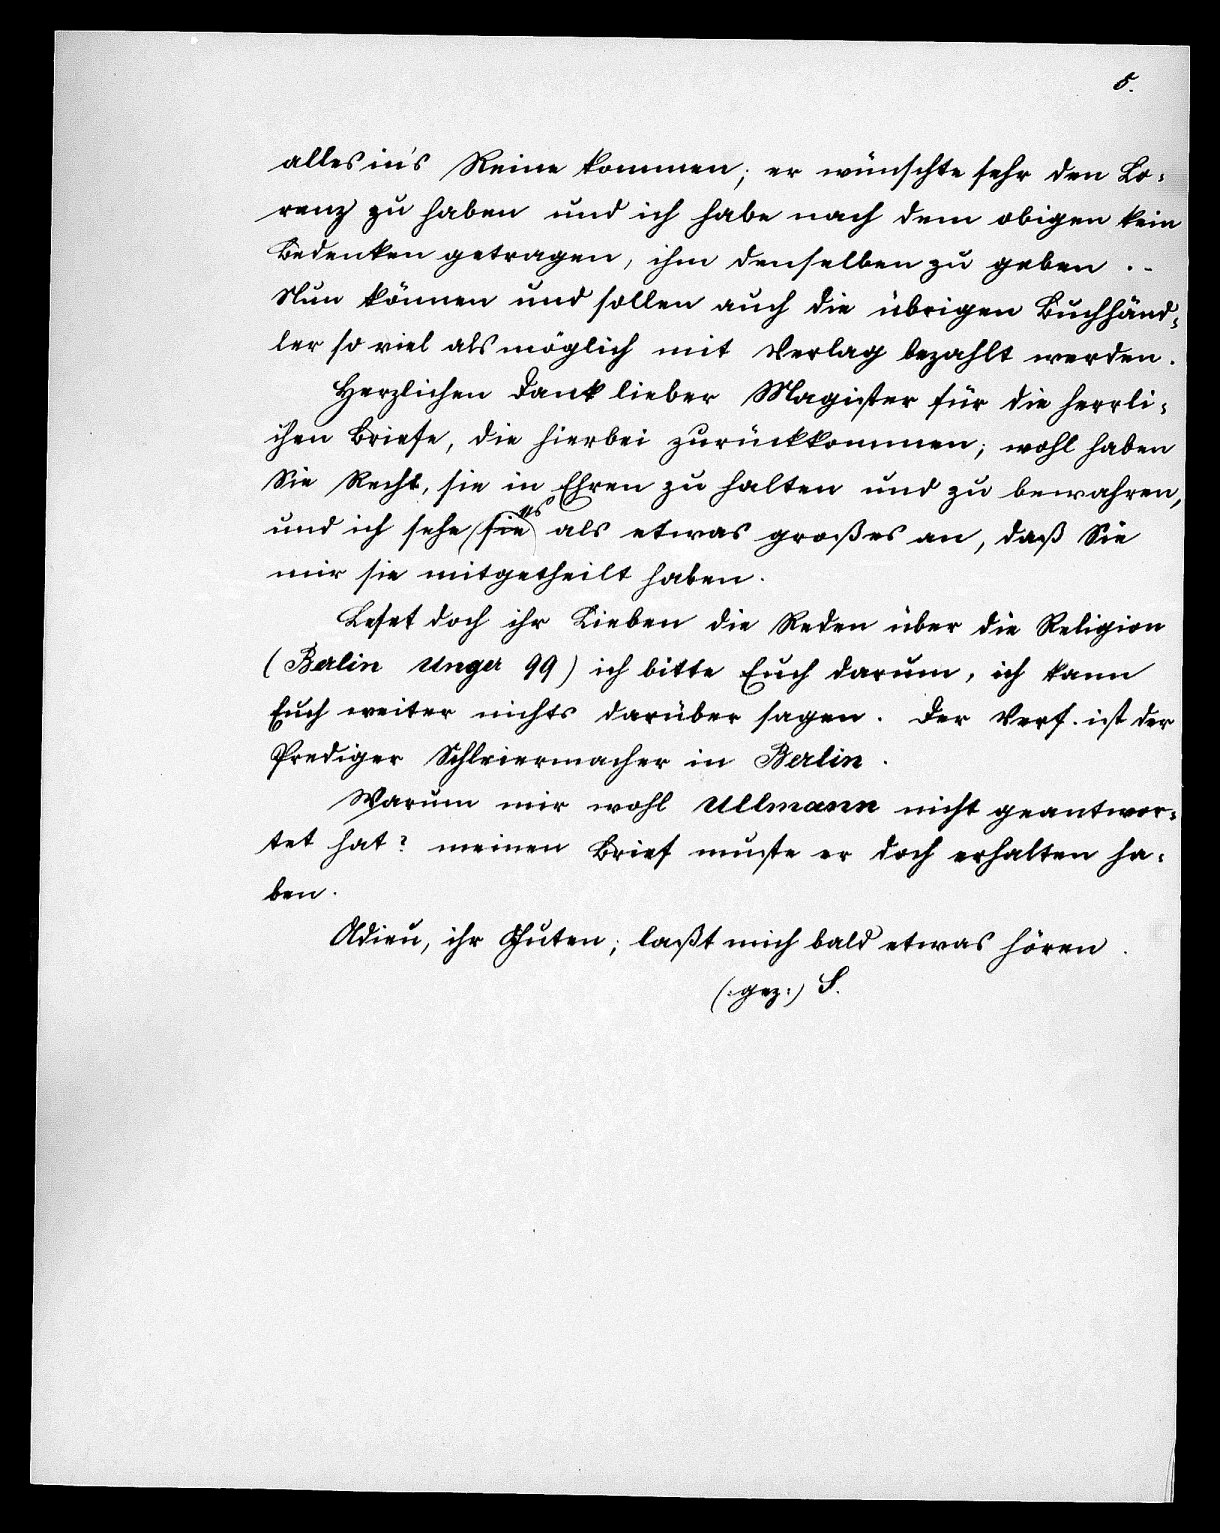 5.
alles in's Reine kommen; er wünschte sehr den Lo-
renz zu haben und ich habe nach dem obigen kein
Bedenken getragen, ihm denselben zu geben . -
Nun können und sollen auch die übrigen Buchhänd-
ler so viel als möglich mit Verlag bezahlt werden.
Herzlichen Dank lieber Magister für die herrli-
chen Briefe, die hierbei zurückkommen; wohl haben
Sie Recht, sie in Ehren zu halten und zu bewahren,
und ich sehe (sie) es als etwas großes an, daß Sie
mir sie mitgetheilt haben.
Leset doch ihr Lieben die Reden über die Religion
(Berlin Unger 99) ich bitte Euch darum, ich kann
Euch weiter nichts darüber sagen. Der Verf. ist der
Prediger Schleiermacher in Berlin.
Warum mir wohl Ullmann nicht geantwor-
tet hat? meinen Brief muste er doch erhalten ha-
ben.
Adieu, ihr Guten; laßt mich bald etwas hören.
(:gez:) S.